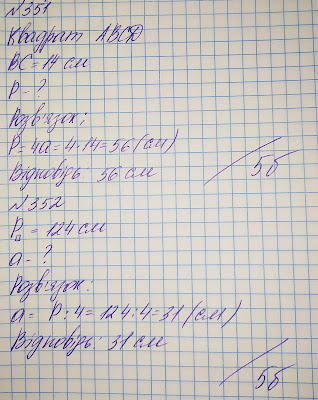 №351
Квадрат ABCD
BC = 14 см
P - ?
Розв'язок:
P = 4a = 4·14 = 56 (см)
Відповідь: 56 см
5б
№352
P□ = 124 см
a - ?
Розв'язок:
a = P : 4 = 124 : 4 = 31 (см)
Відповідь: 31 см
5б